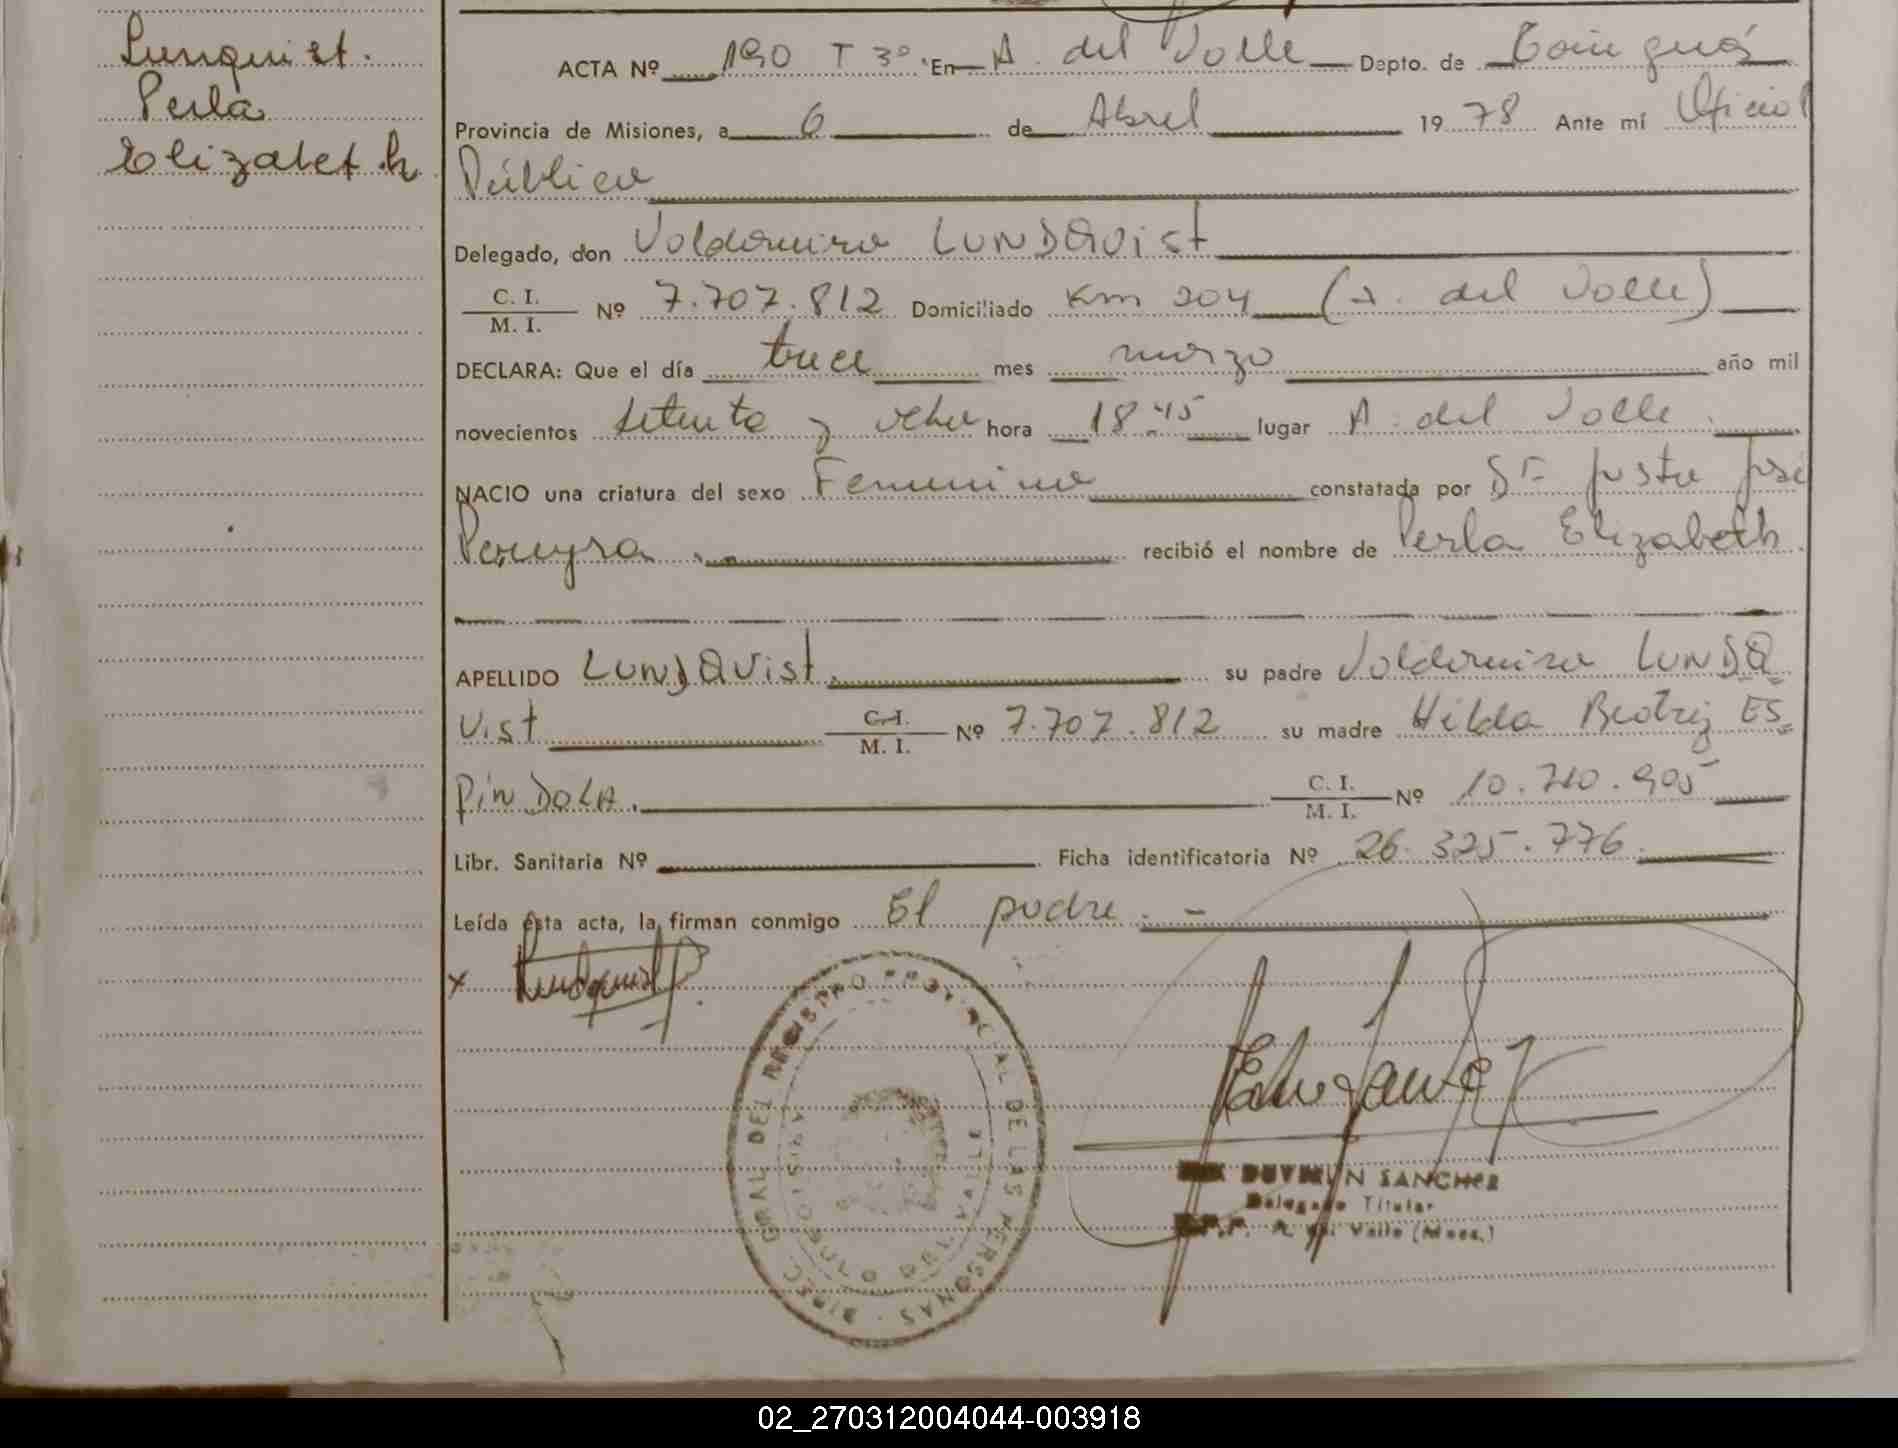 Lunquist.
Perla
Elizabet.h
ACTA Nº 190 T 3º. En A. del Valle Depto. de Cainguás
Provincia de Misiones, a 6 de Abril 1978 Ante mí Oficial
Público
Delegado, don Valdomiro LUNDQVist
C. I.
M. I. Nº 7.707.812 Domiciliado Km 204 (A. del Valle)
DECLARA: Que el día trece mes marzo año mil
novecientos setenta y ocho hora 18.45 lugar A. del Valle.
NACIO una criatura del sexo Femenino constatada por Dr Justo José
Pereyra. recibió el nombre de Perla Elizabeth.
APELLIDO LUNDQVist. su padre Valdomiro LUNDQ
Vist C. I.
M. I. Nº 7.707.812 su madre Hilda Beatriz ES
PiNDOLA. C. I.
M. I. Nº 10.710.905
Libr. Sanitaria Nº Ficha identificatoria Nº 26.325.776.
Leída ésta acta, la firman conmigo El padre. -
x Lundquist
DIREC. GRAL DEL REGISTRO PROVINCIAL DE LAS PERSONAS
SANCHEZ
Delegado Titular
R.P.P. A. del Valle (Mnes.)
02_270312004044-003918